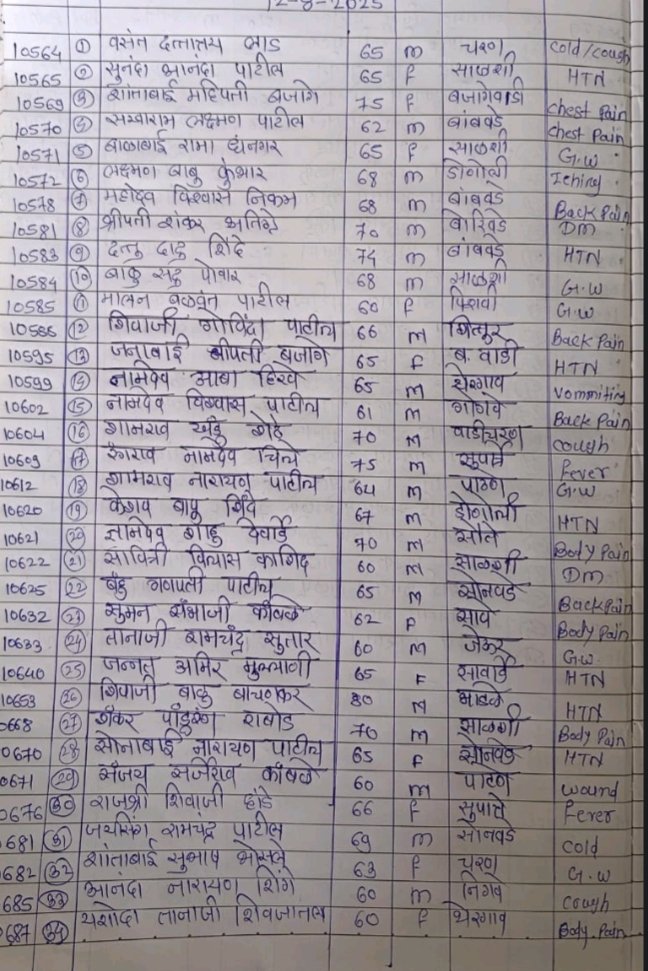 12-8-2025
10564 ① वसंत दत्तात्रय लाड 65 m चरण cold/cough
10565 ② सुनंदा आनंदा पाटील 65 f साळशी HTN
10569 ③ शांताबाई महिपती बजागे 75 f बजागेवाडी chest pain
10570 ④ सखाराम लक्ष्मण पाटील 62 m बांबवडे chest Pain
10571 ⑤ बाळाबाई रामा धनगर 65 f साळशी G.W
10572 ⑥ लक्ष्मण बाबु कुंभार 68 m डोणोली Iching
10578 ⑦ महादेव विश्वास निकम 68 m बांबवडे Back Pain
10581 ⑧ श्रीपती शंकर 70 m DM
10583 ⑨ दत्तु दादु शिंदे 74 m बांबवडे HTN
10584 ⑩ बाळु सदु पोवार 68 m साळशी G.W
10585 ⑪ मालन बळवंत पाटील 60 f पिशवी G.W
10586 ⑫ शिवाजी गोविंदा पाटील 66 M शित्तुर Back Pain
10595 ⑬ जनाबाई श्रीपती बजागे 65 F ब. वाडी HTN
10599 ⑭ नामदेव आबा हिरवे 65 M थेरगाव vommiting
10602 ⑮ नामदेव विश्वास पाटील 61 M गोगवे Back Pain
10604 ⑯ शामराव खंडु 70 M वाडीचरण cough
10609 ⑰ नामदेव चिले 75 M सुपात्रे fever
10612 ⑱ शामराव नारायण पाटील 64 M पाटणे G.W
10620 ⑲ केशव बापु शिंदे 67 m डोणोली HTN
10621 ⑳ ज्ञानदेव देवार्डे 70 M सोते Body Pain
10622 ㉑ सावित्री विलास कागिद 60 M साळशी DM
10625 ㉒ बंडु गणपती पाटील 65 M सोनवडे Backpain
10632 ㉓ सुमन संभाजी कांबळे 62 F सावे Body Pain
10633 ㉔ तानाजी रामचंद्र सुतार 60 M G.W
10640 ㉕ जन्नत अमिर मुल्लाणी 65 F सावार्डे HTN
10653 ㉖ शिवाजी बाळु बाचणकर 80 M HTN
0668 ㉗ शंकर पांडुरंग राठोड 70 m साळशी Body Pain
0670 ㉘ सोनाबाई नारायण पाटील 65 F सोनवडे HTN
0671 ㉙ संजय सर्जेराव कांबळे 60 m पाटणे wound
0676 ㉚ राजश्री शिवाजी 66 f सुपात्रे fever
681 ㉛ जयसिंग रामचंद्र पाटील 69 m सोनवडे cold
682 ㉜ शांताबाई सुभाष भोसले 63 f चरण G.W
685 ㉝ आनंदा नारायण शिंगे 60 m निगवे cough
687 ㉞ यशोदा तानाजी 60 f थेरगाव Body Pain